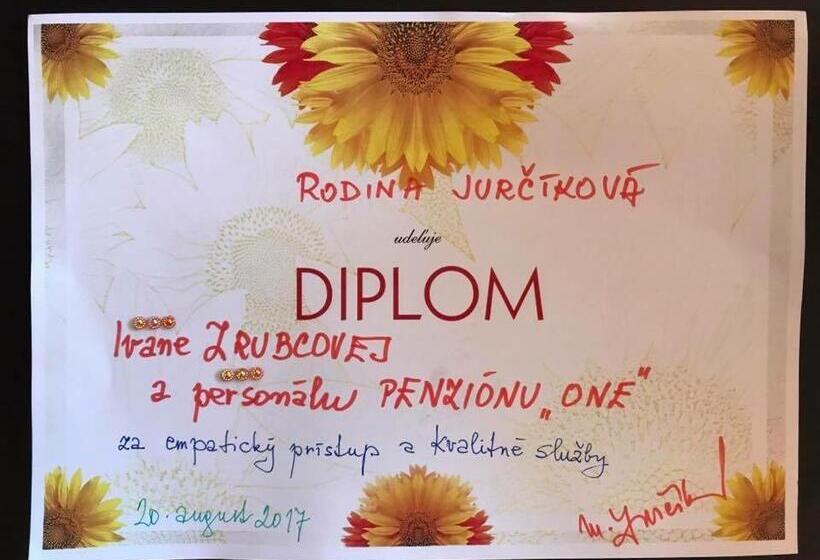 RODINA JURČÍKOVÁ
udeľuje
DIPLOM
Ivane ZRUBCOVEJ
a personálu PENZIÓNU „ONE“
za empatický prístup a kvalitné služby
20. august 2017
M. Jurčík